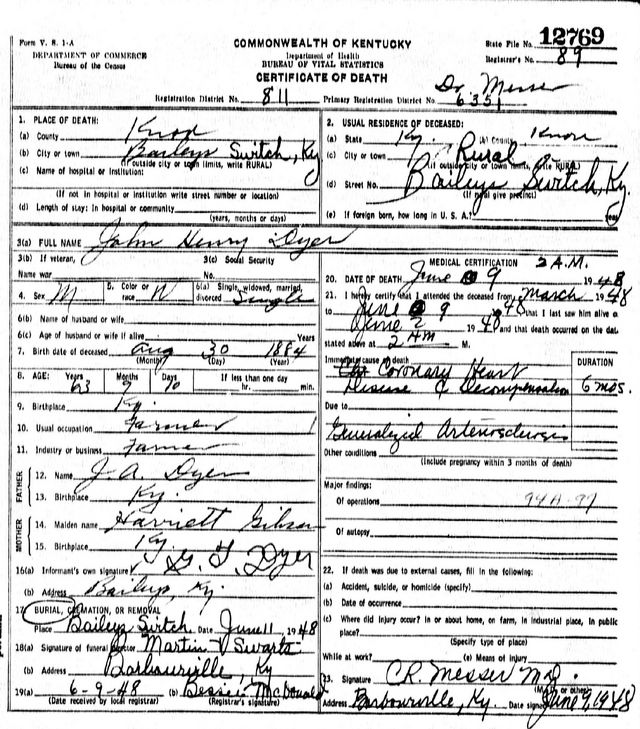 12769
Form V. S. 1-A
COMMONWEALTH OF KENTUCKY
State File No.
DEPARTMENT OF COMMERCE
Department of Health
Registrar's No. 89
Bureau of the Census
BUREAU OF VITAL STATISTICS
CERTIFICATE OF DEATH
Dr. Messer
Registration District No. 811 Primary Registration District No. 6351
1. PLACE OF DEATH:
(a) County Knox
(b) City or town Baileys Switch, Ky
(If outside city or town limits, write RURAL)
(c) Name of hospital or institution:
(If not in hospital or institution write street number or location)
(d) Length of stay: In hospital or community
(years, months or days)
2. USUAL RESIDENCE OF DECEASED:
(a) State Ky. (b) County Knox
(c) City or town Rural
(If outside city or town limits, write RURAL)
(d) Street No. Baileys Switch, Ky.
(If rural give precinct)
(e) If foreign born, how long in U. S. A.?
3(a) FULL NAME John Henry Dyer
3(b) If veteran, 3(c) Social Security
Name war No.
4. Sex M 5. Color or race W 6(a) Single, widowed, married, divorced Single
6(b) Name of husband or wife
6(c) Age of husband or wife if alive Years
7. Birth date of deceased Aug 30 1884
(Month) (Day) (Year)
8. AGE: Years Months Days If less than one day
63 9 10 hr. min.
9. Birthplace Ky.
10. Usual occupation Farmer
11. Industry or business Farmer
FATHER
12. Name J. A. Dyer
13. Birthplace Ky.
MOTHER
14. Maiden name Harriett Gibson
15. Birthplace Ky.
16(a) Informant's own signature G. G. Dyer
(b) Address Baileys, Ky.
17. BURIAL, CREMATION, OR REMOVAL
Place Baileys Switch Date June 11 1948
18(a) Signature of funeral director Martin V Swarts
(b) Address Barbourville, Ky
19(a) 6-9-48 (b) Bessie McDonald
(Date received by local registrar) (Registrar's signature)
MEDICAL CERTIFICATION 2 A.M.
20. DATE OF DEATH June 9 1948
21. I hereby certify that I attended the deceased from March 1948
to June 9 1948 that I last saw him alive on
June 2 1948 and that death occurred on the date
stated above at 2 AM M.
Immediate cause of death DURATION
Coronary Heart
Disease & Decompensation 6 mos.
Due to
Generalized Arteriosclerosis
Other conditions
(Include pregnancy within 3 months of death)
Major findings:
Of operations 94A-97
Of autopsy
22. If death was due to external causes, fill in the following:
(a) Accident, suicide, or homicide (specify)
(b) Date of occurrence
(c) Where did injury occur? In or about home, on farm, in industrial place, in public
place?
(Specify type of place)
While at work? (e) Means of injury
23. Signature C.R. Messer M.D.
(M.D. or other)
Address Barbourville, Ky. Date signed June 9, 1948